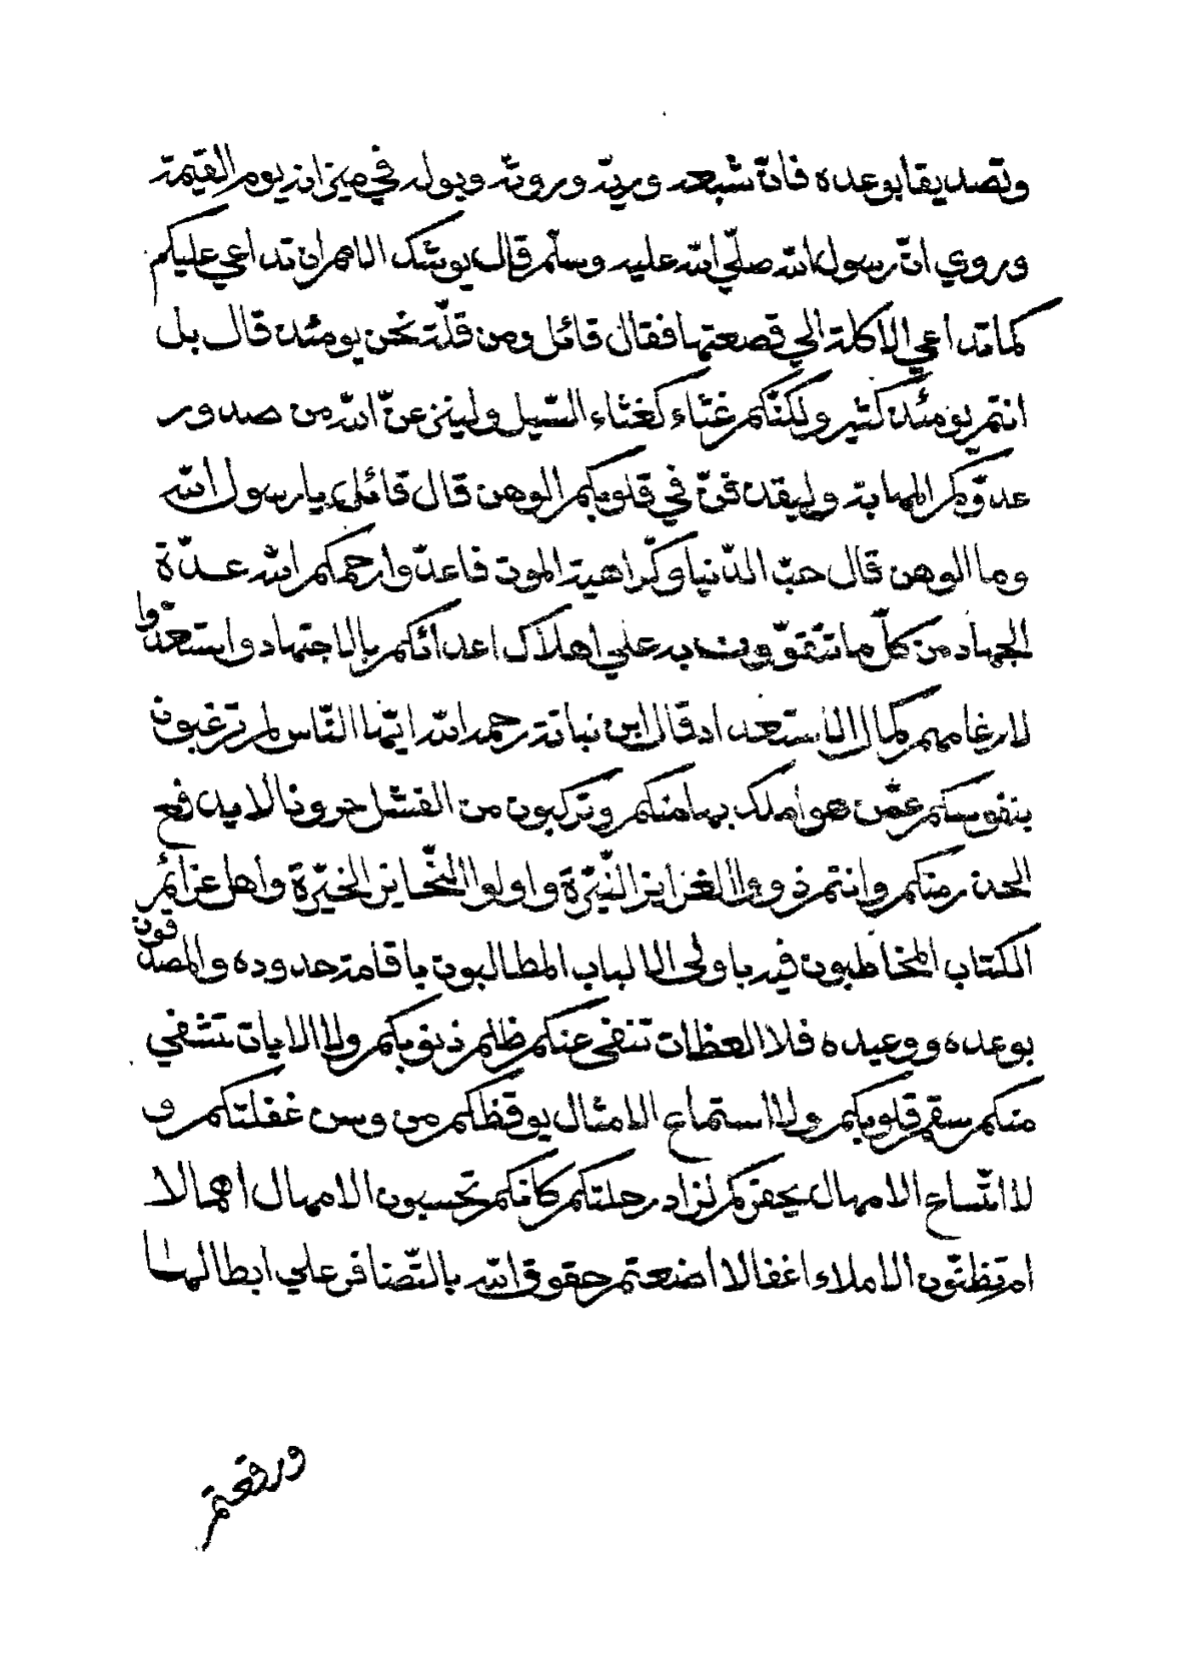 وتصديقا بوعده فانّ شبعه وريّه وروثه وبوله في ميزانه يوم القيمة
وروي انّ رسول الله صلّي الله عليه وسلّم قال يوشك الامم ان تداعي عليكم
كما تداعي الاكلة الي قصعتها فقال قائل ومن قلّة نحن يومئذ قال بل
انتم يومئذ كثير ولكنّكم غثاء كغثاء السّيل ولينزعنّ الله من صدور
عدوّكم المهابة وليقذفنّ في قلوبكم الوهن قال قائل يا رسول الله
وما الوهن قال حبّ الدّنيا وكراهية الموت فاعدّوا رحمكم الله عدّة
الجهاد من كلّ ما تتقوّون به علي اهلاك اعدائكم بالاجتهاد واستعدّوا
لارغامهم كمال الاستعداد قال ابن نباتة رحمه الله ايّها النّاس لم ترغبون
بنفوسكم عمّن هو املك بها منكم وتركبون من الفشل حرونا لا يدفع
الحذر منكم وانتم ذووا الغرايز النّيّرة واولوا النّحايز الخيّرة واهل عزائم
الكتاب المخاطبون فيه باولي الالباب المطالبون باقامة حدوده والمصدّقون
بوعده ووعيده فلا العظات تنفي عنكم ظلم ذنوبكم ولا الايات تشفي
منكم سقم قلوبكم ولا استماع الامثال يوقظكم من وسن غفلتكم و
لا اتّساع الامهال يحفزكم لزاد رحلتكم كانكم تحسبون الامهال اهمالا
ام تظنّون الاملاء اغفالا اضعتم حقوق الله بالتّضافر علي ابطالها
ورفعتم